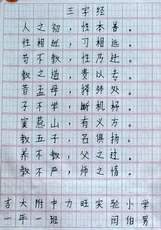 三字经
人之初，性本善。
性相近，习相远。
苟不教，性乃迁。
教之道，贵以专。
昔孟母，择邻处。
子不学，断机杼。
窦燕山，有义方。
教五子，名俱扬。
养不教，父之过。
教不严，师之惰。
吉大附中力旺实验小学
一年一班 闫伯勇